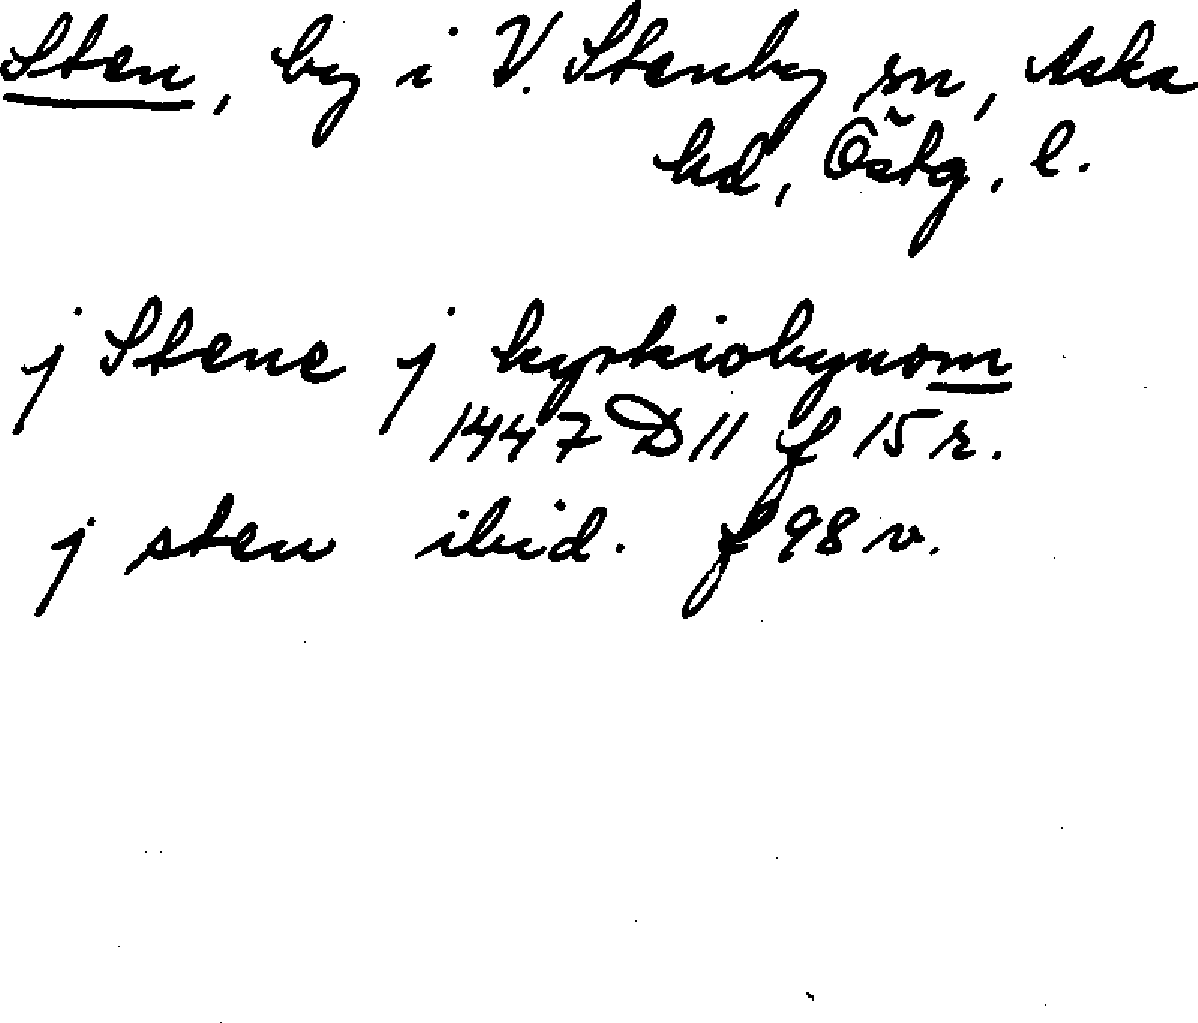 Sten, by i V. Stenby sn, Aska
hd, Östg. l.
j Stene j kyrkiobynom
1447 D 11 f 15 r.
j sten ibid. f 98 v.